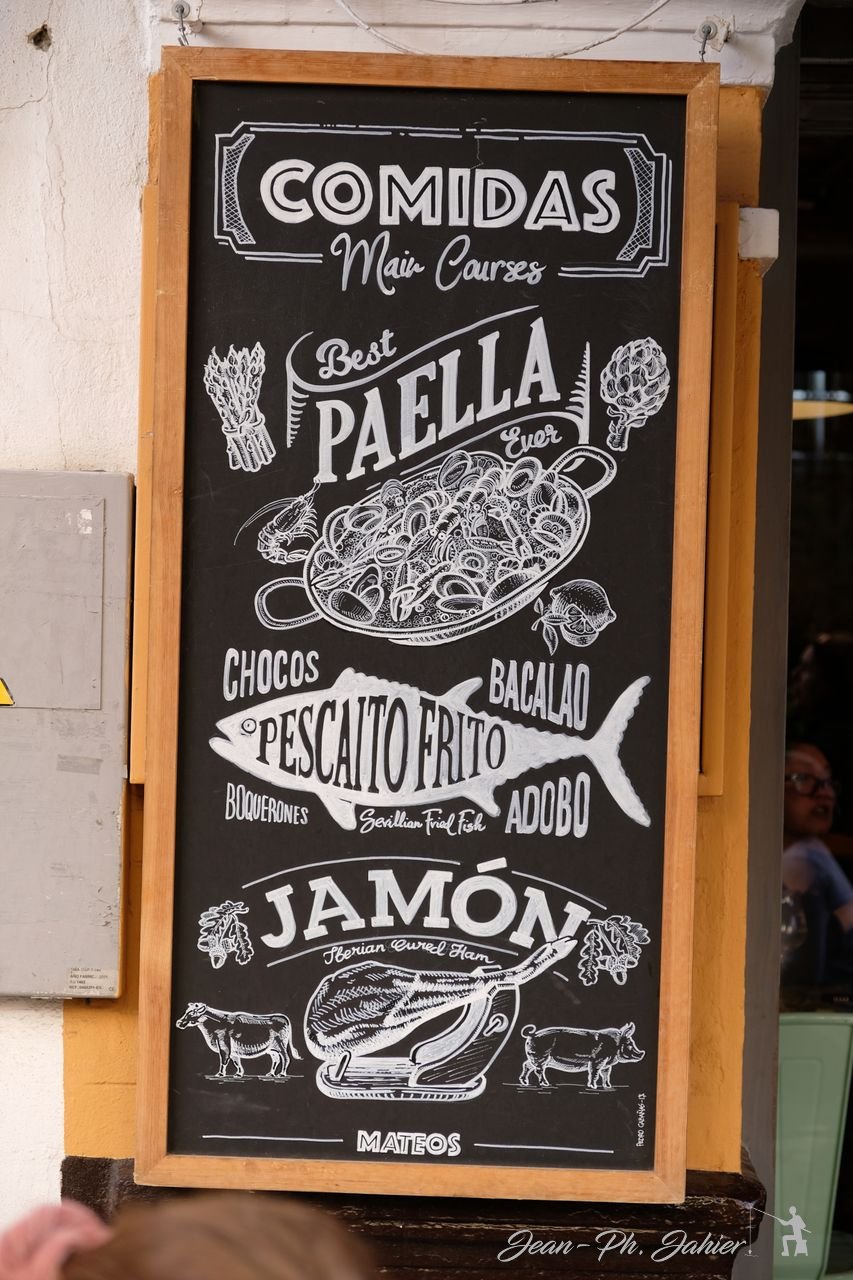 COMIDAS
Main Courses
Best
PAELLA
Ever
CHOCOS
BACALAO
PESCAITO FRITO
BOQUERONES
Sevillian Fried Fish
ADOBO
JAMÓN
Iberian Cured Ham
MATEOS
Jean-Ph. Jahier